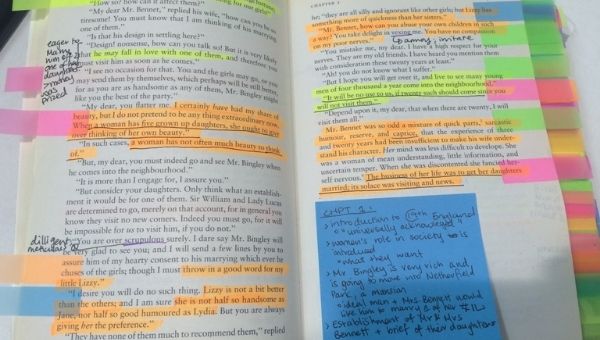 "How so? how can it affect them?"
"My dear Mr. Bennet," replied his wife, "how can you be so
tiresome! You must know that I am thinking of his marrying
one of them."
"Is that his design in settling here?"
"Design! nonsense, how can you talk so! But it is very likely
that he may fall in love with one of them, and therefore you
must visit him as soon as he comes."
"I see no occasion for that. You and the girls may go, or you
may send them by themselves, which perhaps will be still better,
for as you are as handsome as any of them, Mr. Bingley might
like you the best of the party."
"My dear, you flatter me. I certainly have had my share of
beauty, but I do not pretend to be any thing extraordinary now.
When a woman has five grown up daughters, she ought to give
over thinking of her own beauty."
"In such cases, a woman has not often much beauty to think
of."
"But, my dear, you must indeed go and see Mr. Bingley when
he comes into the neighbourhood."
"It is more than I engage for, I assure you."
"But consider your daughters. Only think what an establish-
ment it would be for one of them. Sir William and Lady Lucas
are determined to go, merely on that account, for in general you
know they visit no new comers. Indeed you must go, for it will
be impossible for us to visit him, if you do not."
"You are over scrupulous surely. I dare say Mr. Bingley will
be very glad to see you; and I will send a few lines by you to
assure him of my hearty consent to his marrying which ever he
chuses of the girls; though I must throw in a good word for my
little Lizzy."
"I desire you will do no such thing. Lizzy is not a bit better
than the others; and I am sure she is not half so handsome as
Jane, nor half so good humoured as Lydia. But you are always
giving her the preference."
"They have none of them much to recommend them," replied
eager to
marry
him off
one of her
daughters
diligent,
meticulous
CHAPTER 1
he; "they are all silly and ignorant like other girls; but Lizzy has
something more of quickness than her sisters."
"Mr. Bennet, how can you abuse your own children in such
a way? You take delight in vexing me. You have no compassion
on my poor nerves."
annoy, irritate
"You mistake me, my dear. I have a high respect for your
nerves. They are my old friends. I have heard you mention them
with consideration these twenty years at least."
"Ah! you do not know what I suffer."
"But I hope you will get over it, and live to see many young
men of four thousand a year come into the neighbourhood."
"It will be no use to us, if twenty such should come since you
will not visit them."
"Depend upon it, my dear, that when there are twenty, I will
visit them all."
Mr. Bennet was so odd a mixture of quick parts, sarcastic
humour, reserve, and caprice, that the experience of three
and twenty years had been insufficient to make his wife under-
stand his character. Her mind was less difficult to develope. She
was a woman of mean understanding, little information, and
uncertain temper. When she was discontented she fancied her-
self nervous. The business of her life was to get her daughters
married; its solace was visiting and news.
CHPT 1:
> introduction to 19th England
"universally acknowledged"
> women's role in society is
introduced
what they want
> Mr Bingley is very rich and
is going to move into Netherfield
Park, a mansion
ideal man & Mrs Bennett would
like him to marry 1 of her
> Establishment of Mr & Mrs
Bennett + brief of their daughters